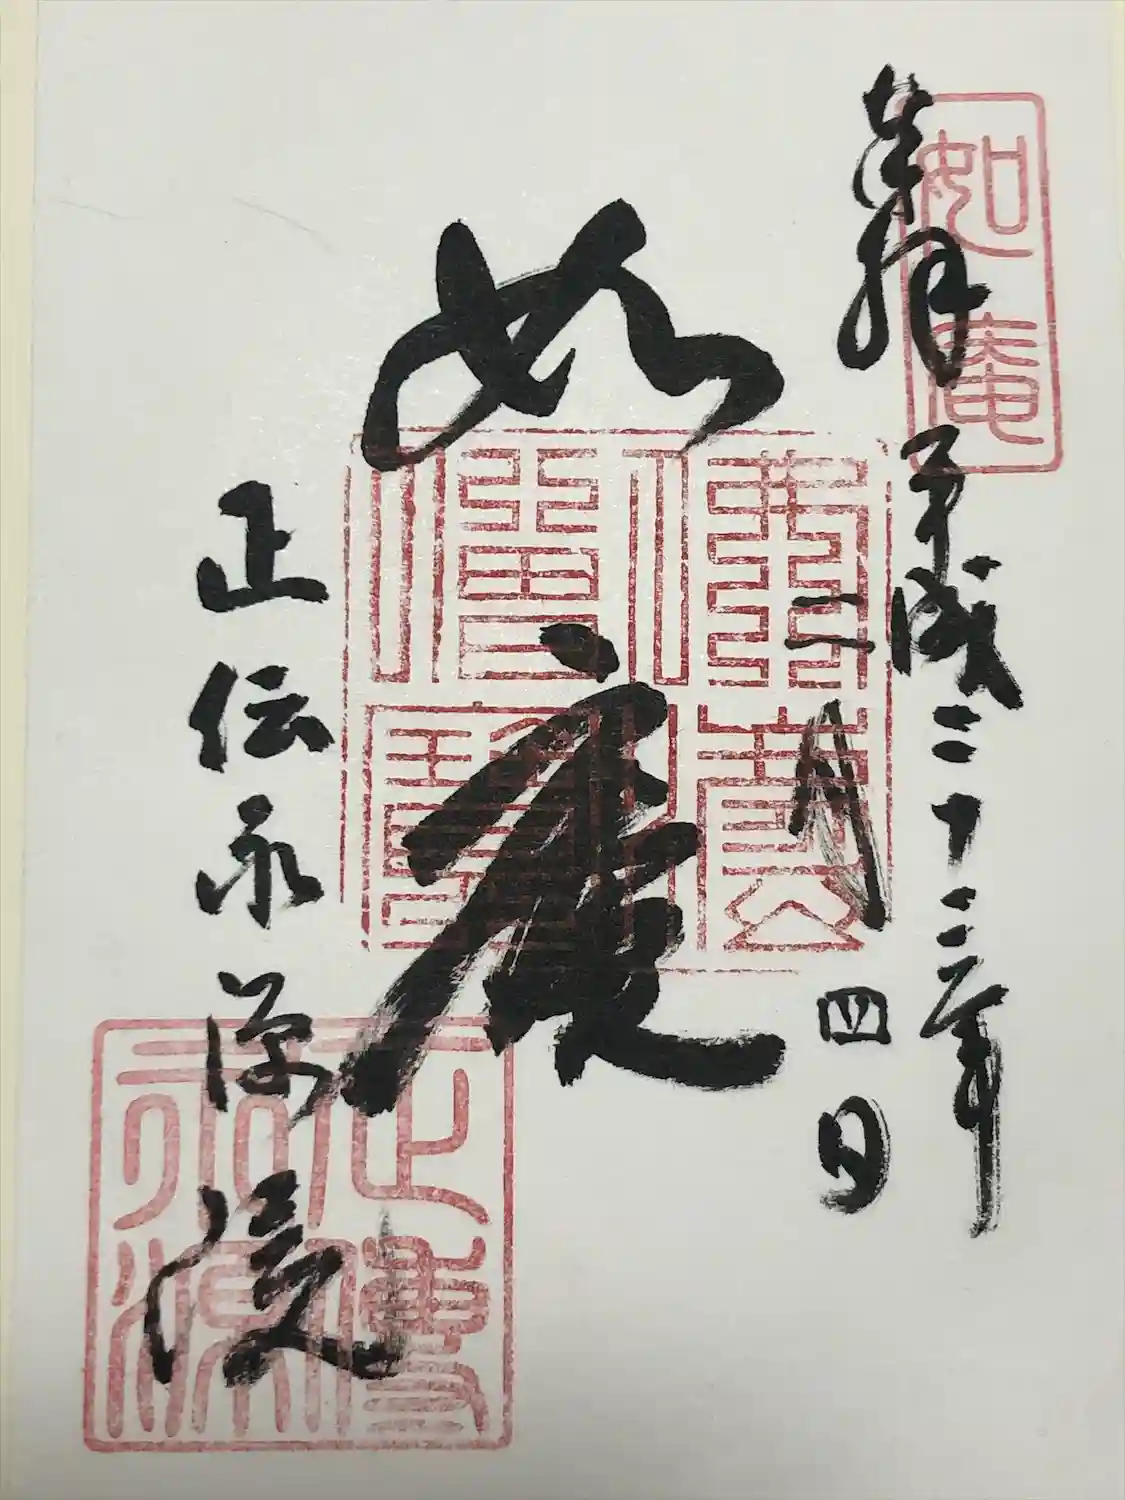 奉拝
平成二十二年
二月四日
如庵
正伝永源院
如庵
正傳永源